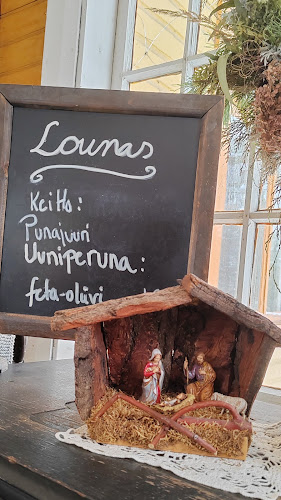 Lounas
Keitto:
Punajuuri
Uuniperuna:
feta-oliivi